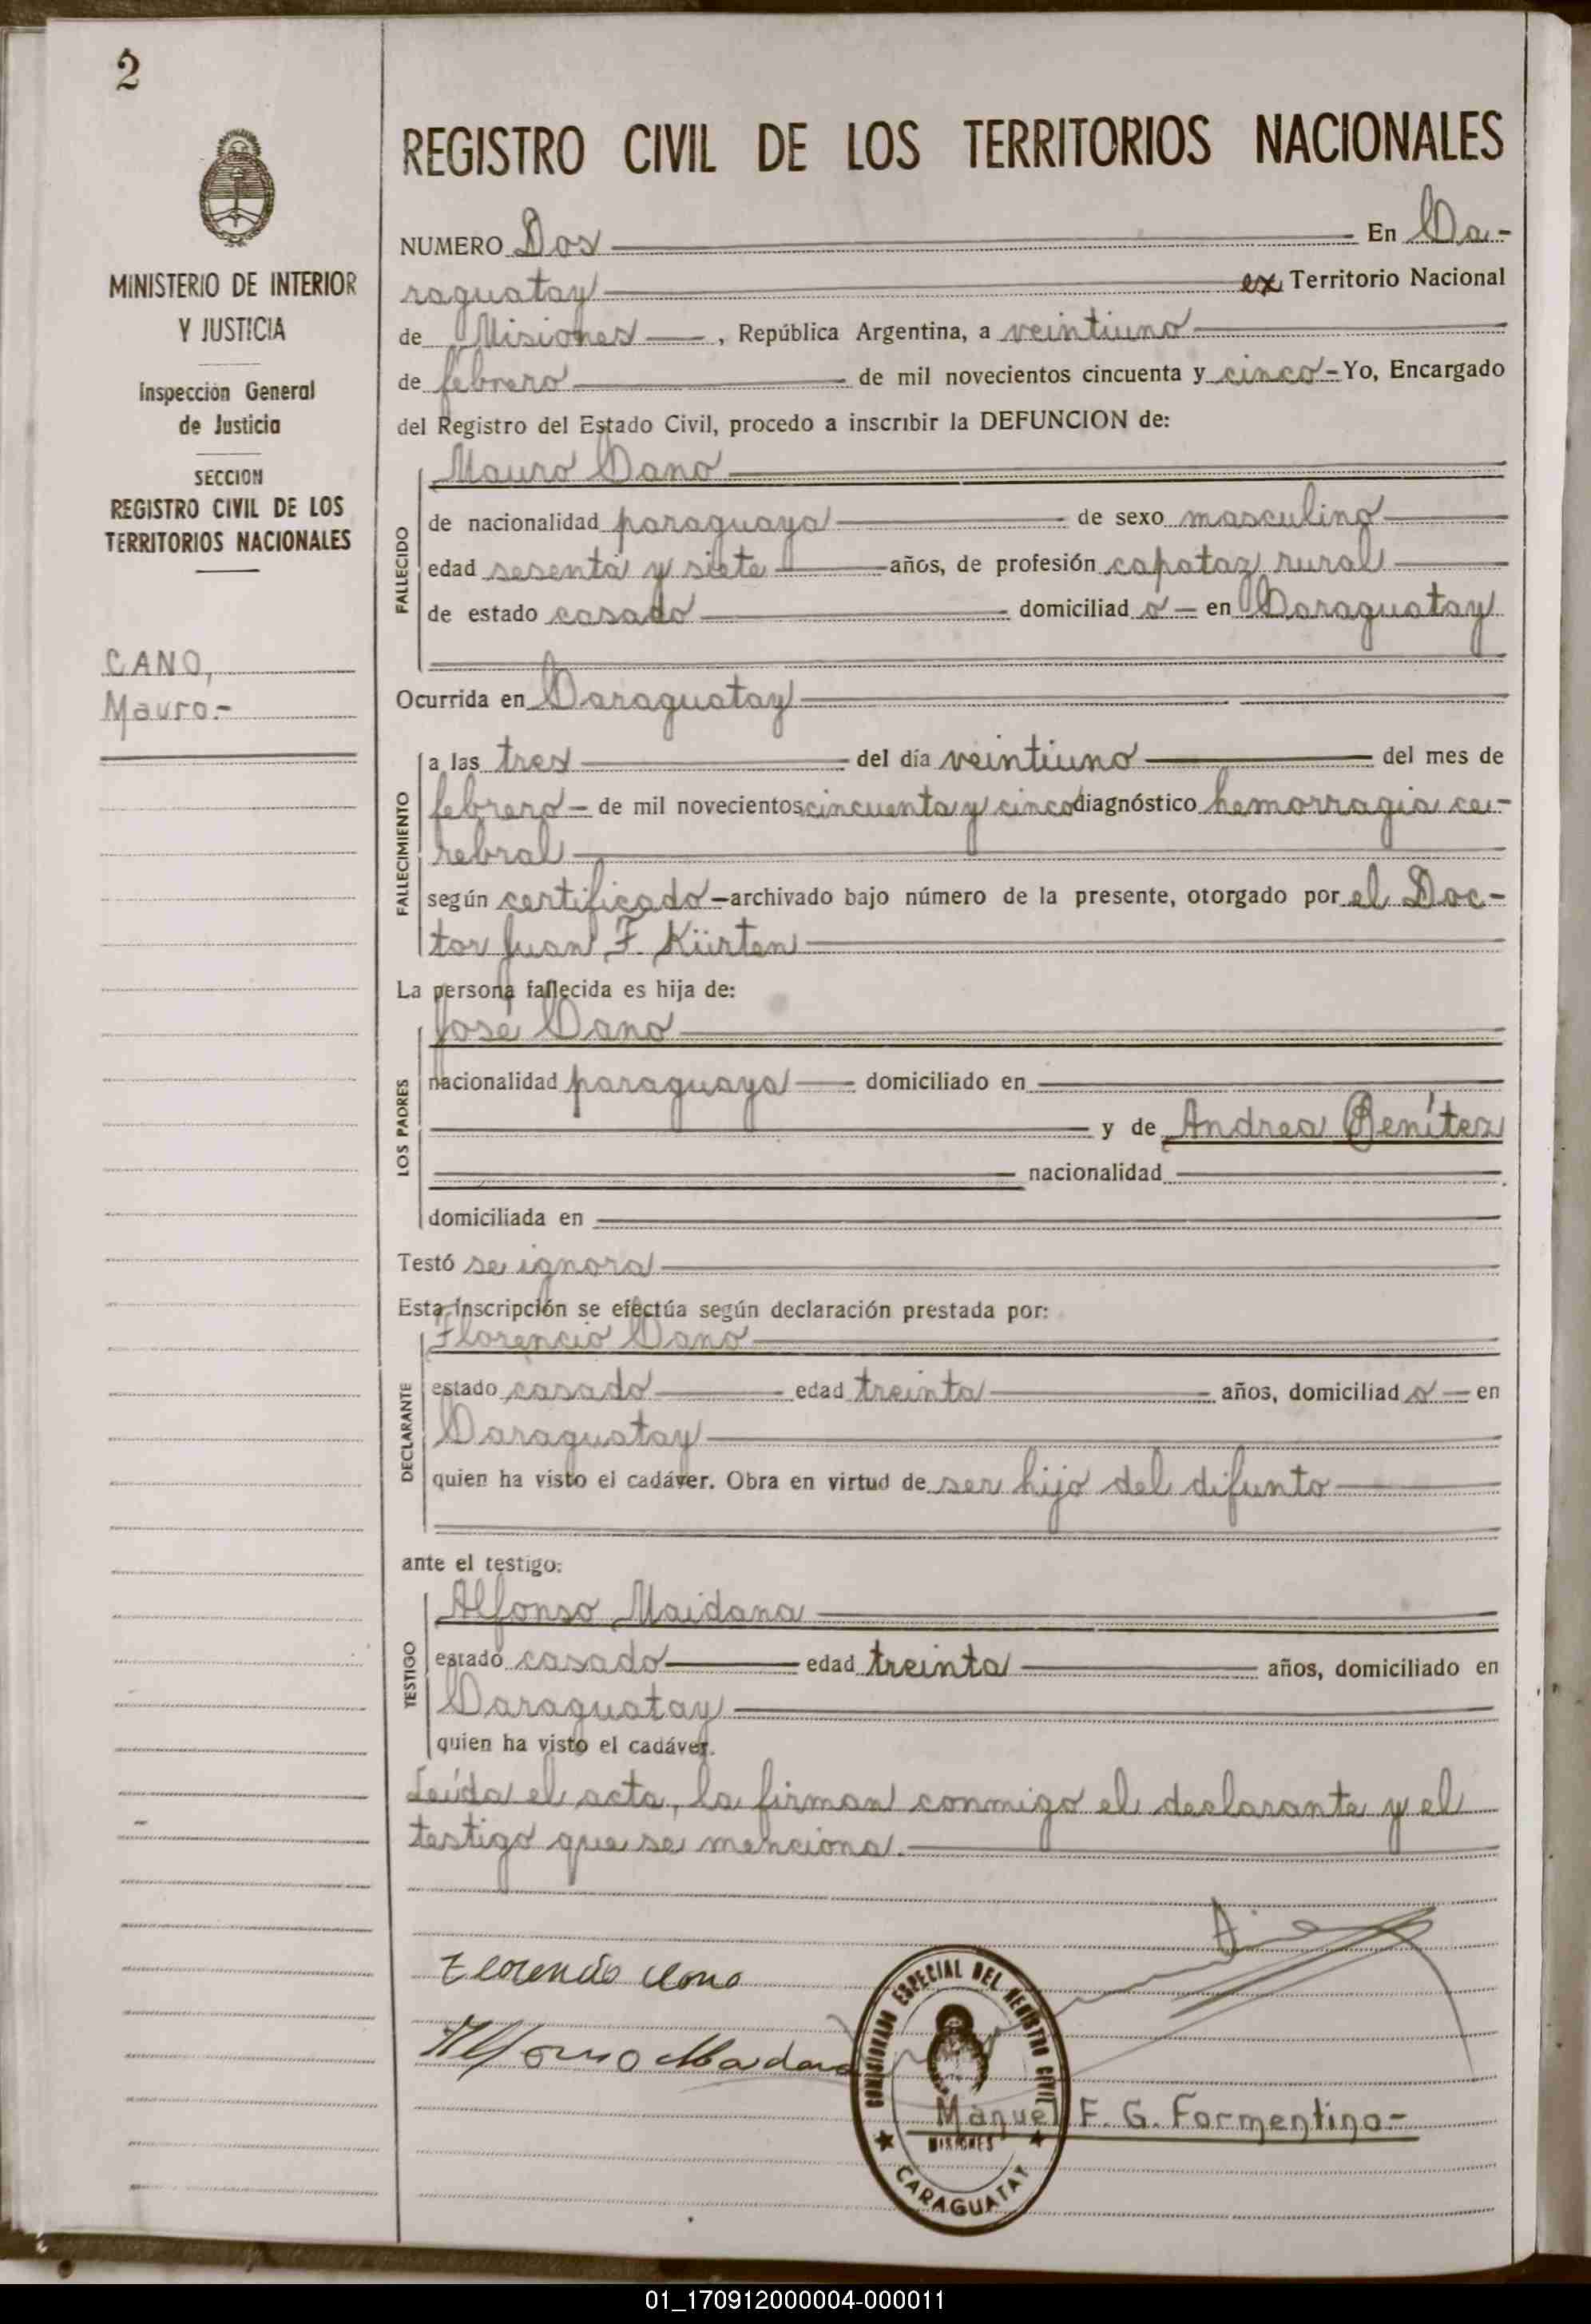 2
MINISTERIO DE INTERIOR
Y JUSTICIA
Inspección General
de Justicia
SECCION
REGISTRO CIVIL DE LOS
TERRITORIOS NACIONALES
CANO,
Mauro.-
REGISTRO CIVIL DE LOS TERRITORIOS NACIONALES
NUMERO Dos En Ca-
raguatay ex Territorio Nacional
de Misiones, República Argentina, a veintiuno
de febrero de mil novecientos cincuenta y cinco - Yo, Encargado
del Registro del Estado Civil, procedo a inscribir la DEFUNCION de:
FALLECIDO
Mauro Cano
de nacionalidad paraguaya de sexo masculino
edad sesenta y siete años, de profesión capataz rural
de estado casado domiciliad o en Caraguatay
Ocurrida en Caraguatay
FALLECIMIENTO
a las tres del día veintiuno del mes de
febrero de mil novecientos cincuenta y cinco diagnóstico hemorragia ce-
rebral
según certificado archivado bajo número de la presente, otorgado por el Doc-
tor Juan F. Kürten
La persona fallecida es hija de:
LOS PADRES
José Cano
nacionalidad paraguaya domiciliado en
y de Andrea Benítez
nacionalidad
domiciliada en
Testó se ignora
Esta inscripción se efectúa según declaración prestada por:
DECLARANTE
Florencio Cano
estado casado edad treinta años, domiciliad o en
Caraguatay
quien ha visto el cadáver. Obra en virtud de ser hijo del difunto
ante el testigo:
TESTIGO
Alfonso Maidana
estado casado edad treinta años, domiciliado en
Caraguatay
quien ha visto el cadáver.
Leída el acta, la firman conmigo el declarante y el
testigo que se menciona.
Florencio Cano
Alfonso Maidana
COMISIONADO ESPECIAL DEL REGISTRO CIVIL
Manuel F. G. Formentino-
MISIONES
CARAGUATAY
01_170912000004-000011